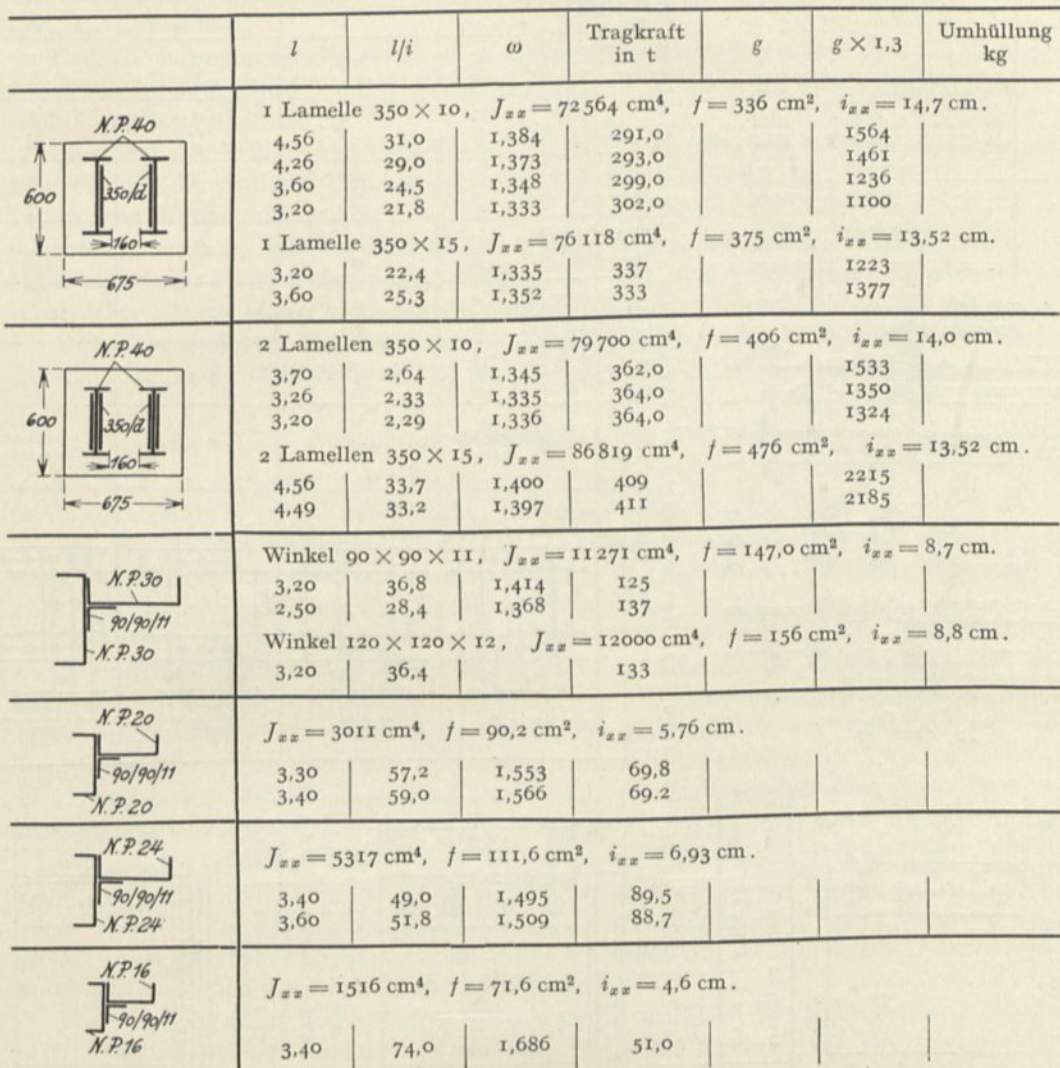 l l/i ω Tragkraft in t g g × 1,3 Umhüllung kg
N.P.40
600
350/d
160
675
1 Lamelle 350 × 10, Jxx = 72564 cm⁴, f = 336 cm², ixx = 14,7 cm.
4,56 31,0 1,384 291,0 1564
4,26 29,0 1,373 293,0 1461
3,60 24,5 1,348 299,0 1236
3,20 21,8 1,333 302,0 1100
1 Lamelle 350 × 15, Jxx = 76 118 cm⁴, f = 375 cm², ixx = 13,52 cm.
3,20 22,4 1,335 337 1223
3,60 25,3 1,352 333 1377
N.P.40
600
350/d
160
675
2 Lamellen 350 × 10, Jxx = 79 700 cm⁴, f = 406 cm², ixx = 14,0 cm.
3,70 2,64 1,345 362,0 1533
3,26 2,33 1,335 364,0 1350
3,20 2,29 1,336 364,0 1324
2 Lamellen 350 × 15, Jxx = 86819 cm⁴, f = 476 cm², ixx = 13,52 cm.
4,56 33,7 1,400 409 2215
4,49 33,2 1,397 411 2185
N.P.30
90/90/11
N.P.30
Winkel 90 × 90 × 11, Jxx = 11271 cm⁴, f = 147,0 cm², ixx = 8,7 cm.
3,20 36,8 1,414 125
2,50 28,4 1,368 137
Winkel 120 × 120 × 12, Jxx = 12000 cm⁴, f = 156 cm², ixx = 8,8 cm.
3,20 36,4 133
N.P.20
90/90/11
N.P.20
Jxx = 3011 cm⁴, f = 90,2 cm², ixx = 5,76 cm.
3,30 57,2 1,553 69,8
3,40 59,0 1,566 69.2
N.P.24
90/90/11
N.P.24
Jxx = 5317 cm⁴, f = 111,6 cm², ixx = 6,93 cm.
3,40 49,0 1,495 89,5
3,60 51,8 1,509 88,7
N.P.16
90/90/11
N.P.16
Jxx = 1516 cm⁴, f = 71,6 cm², ixx = 4,6 cm.
3,40 74,0 1,686 51,0